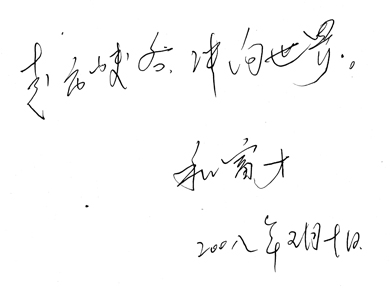 走出峡谷，冲向世界。
和富才
200八年2月十日